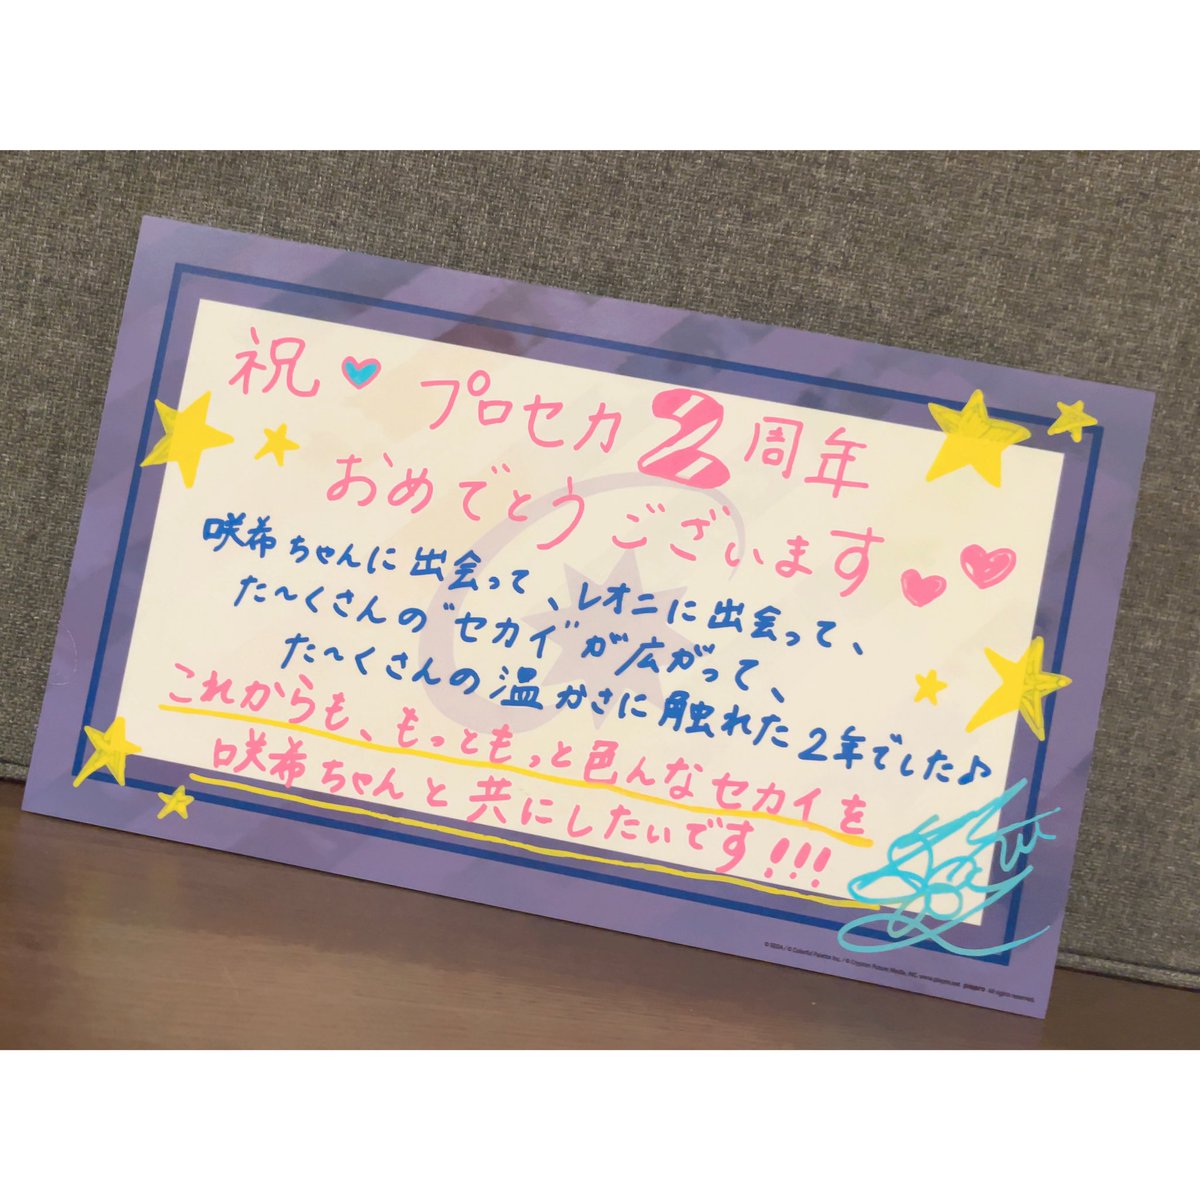 祝 プロセカ2周年
おめでとうございます
咲希ちゃんに出会って、レオニに出会って、
た〜くさんの"セカイ"が広がって、
た〜くさんの温かさに触れた2年でした♪
これからも、もっともっと色んなセカイを
咲希ちゃんと共にしたいです!!!
© SEGA / © Colorful Palette Inc. / © Crypton Future Media, INC. www.piapro.net piapro All rights reserved.